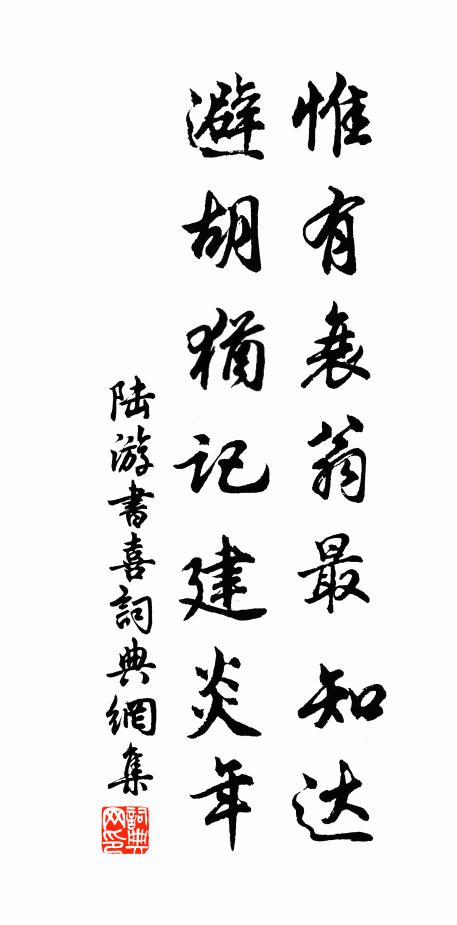 惟有衰翁最知达
避胡犹记建炎年
陆游书喜詞典網集
詞典网印